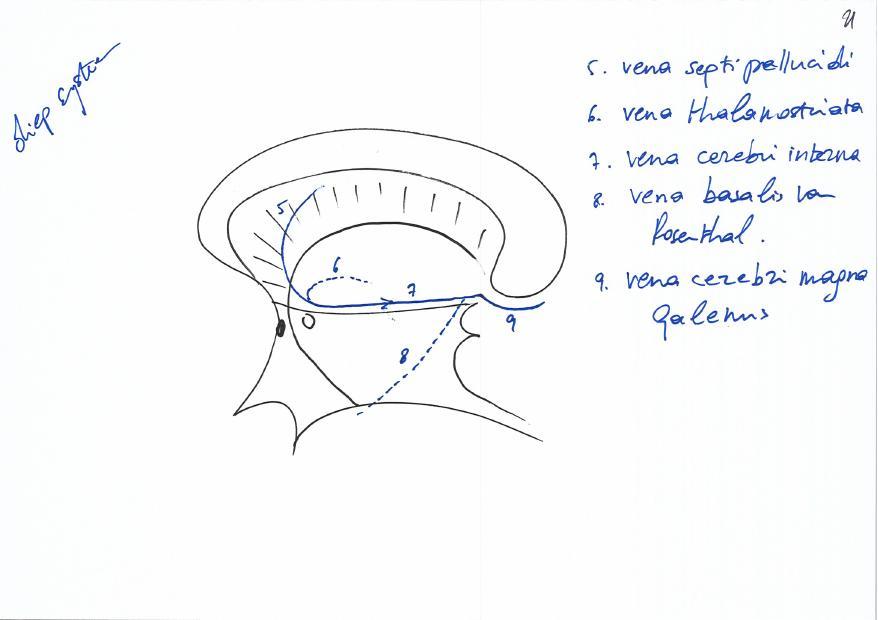 21
diep system
5. vena septi pellucidi
6. vena thalamostriata
7. vena cerebri interna
8. vena basalis van
Rosenthal.
9. vena cerebri magna
Galenus
5
6
7
8
9